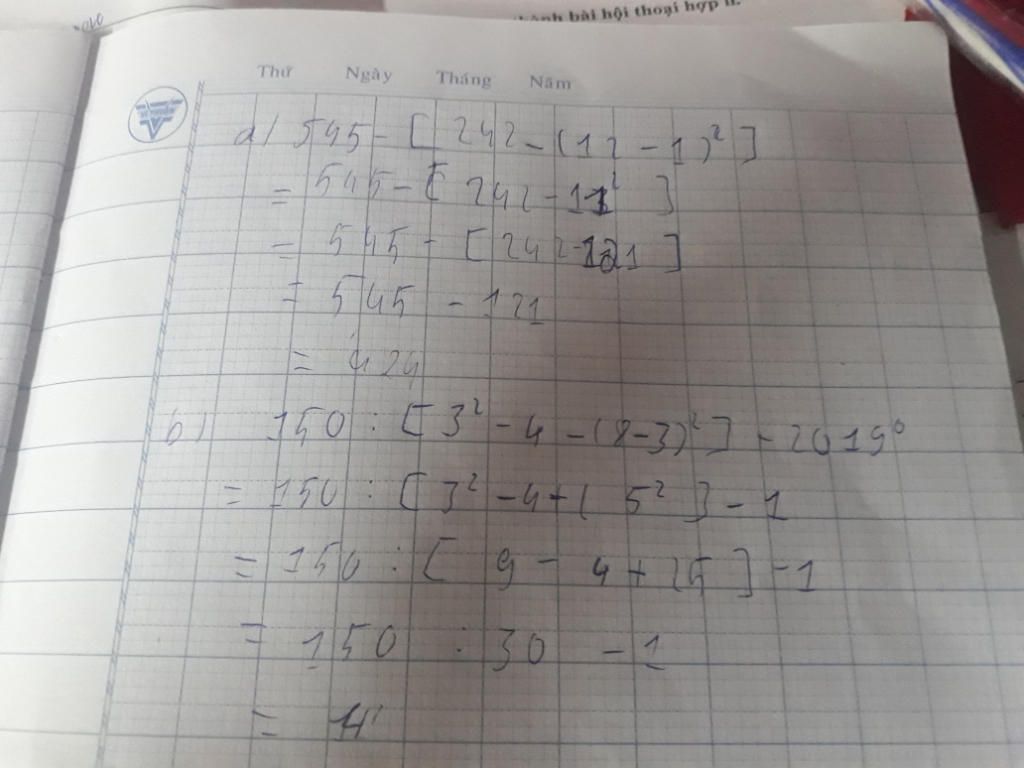 hành bài hội thoại hợp
Thứ Ngày Tháng Năm
a/ 545 - [ 242 - (12 - 1)² ]
= 545 - [ 242 - 11² ]
= 545 - [ 242 - 121 ]
= 545 - 121
= 424
b) 150 : [ 3² - 4 - (8 - 3)² ] - 2019⁰
= 150 : [ 3² - 4 + ( 5² ] - 1
= 150 : [ 9 - 4 + 25 ] - 1
= 150 : 30 - 1
= 4